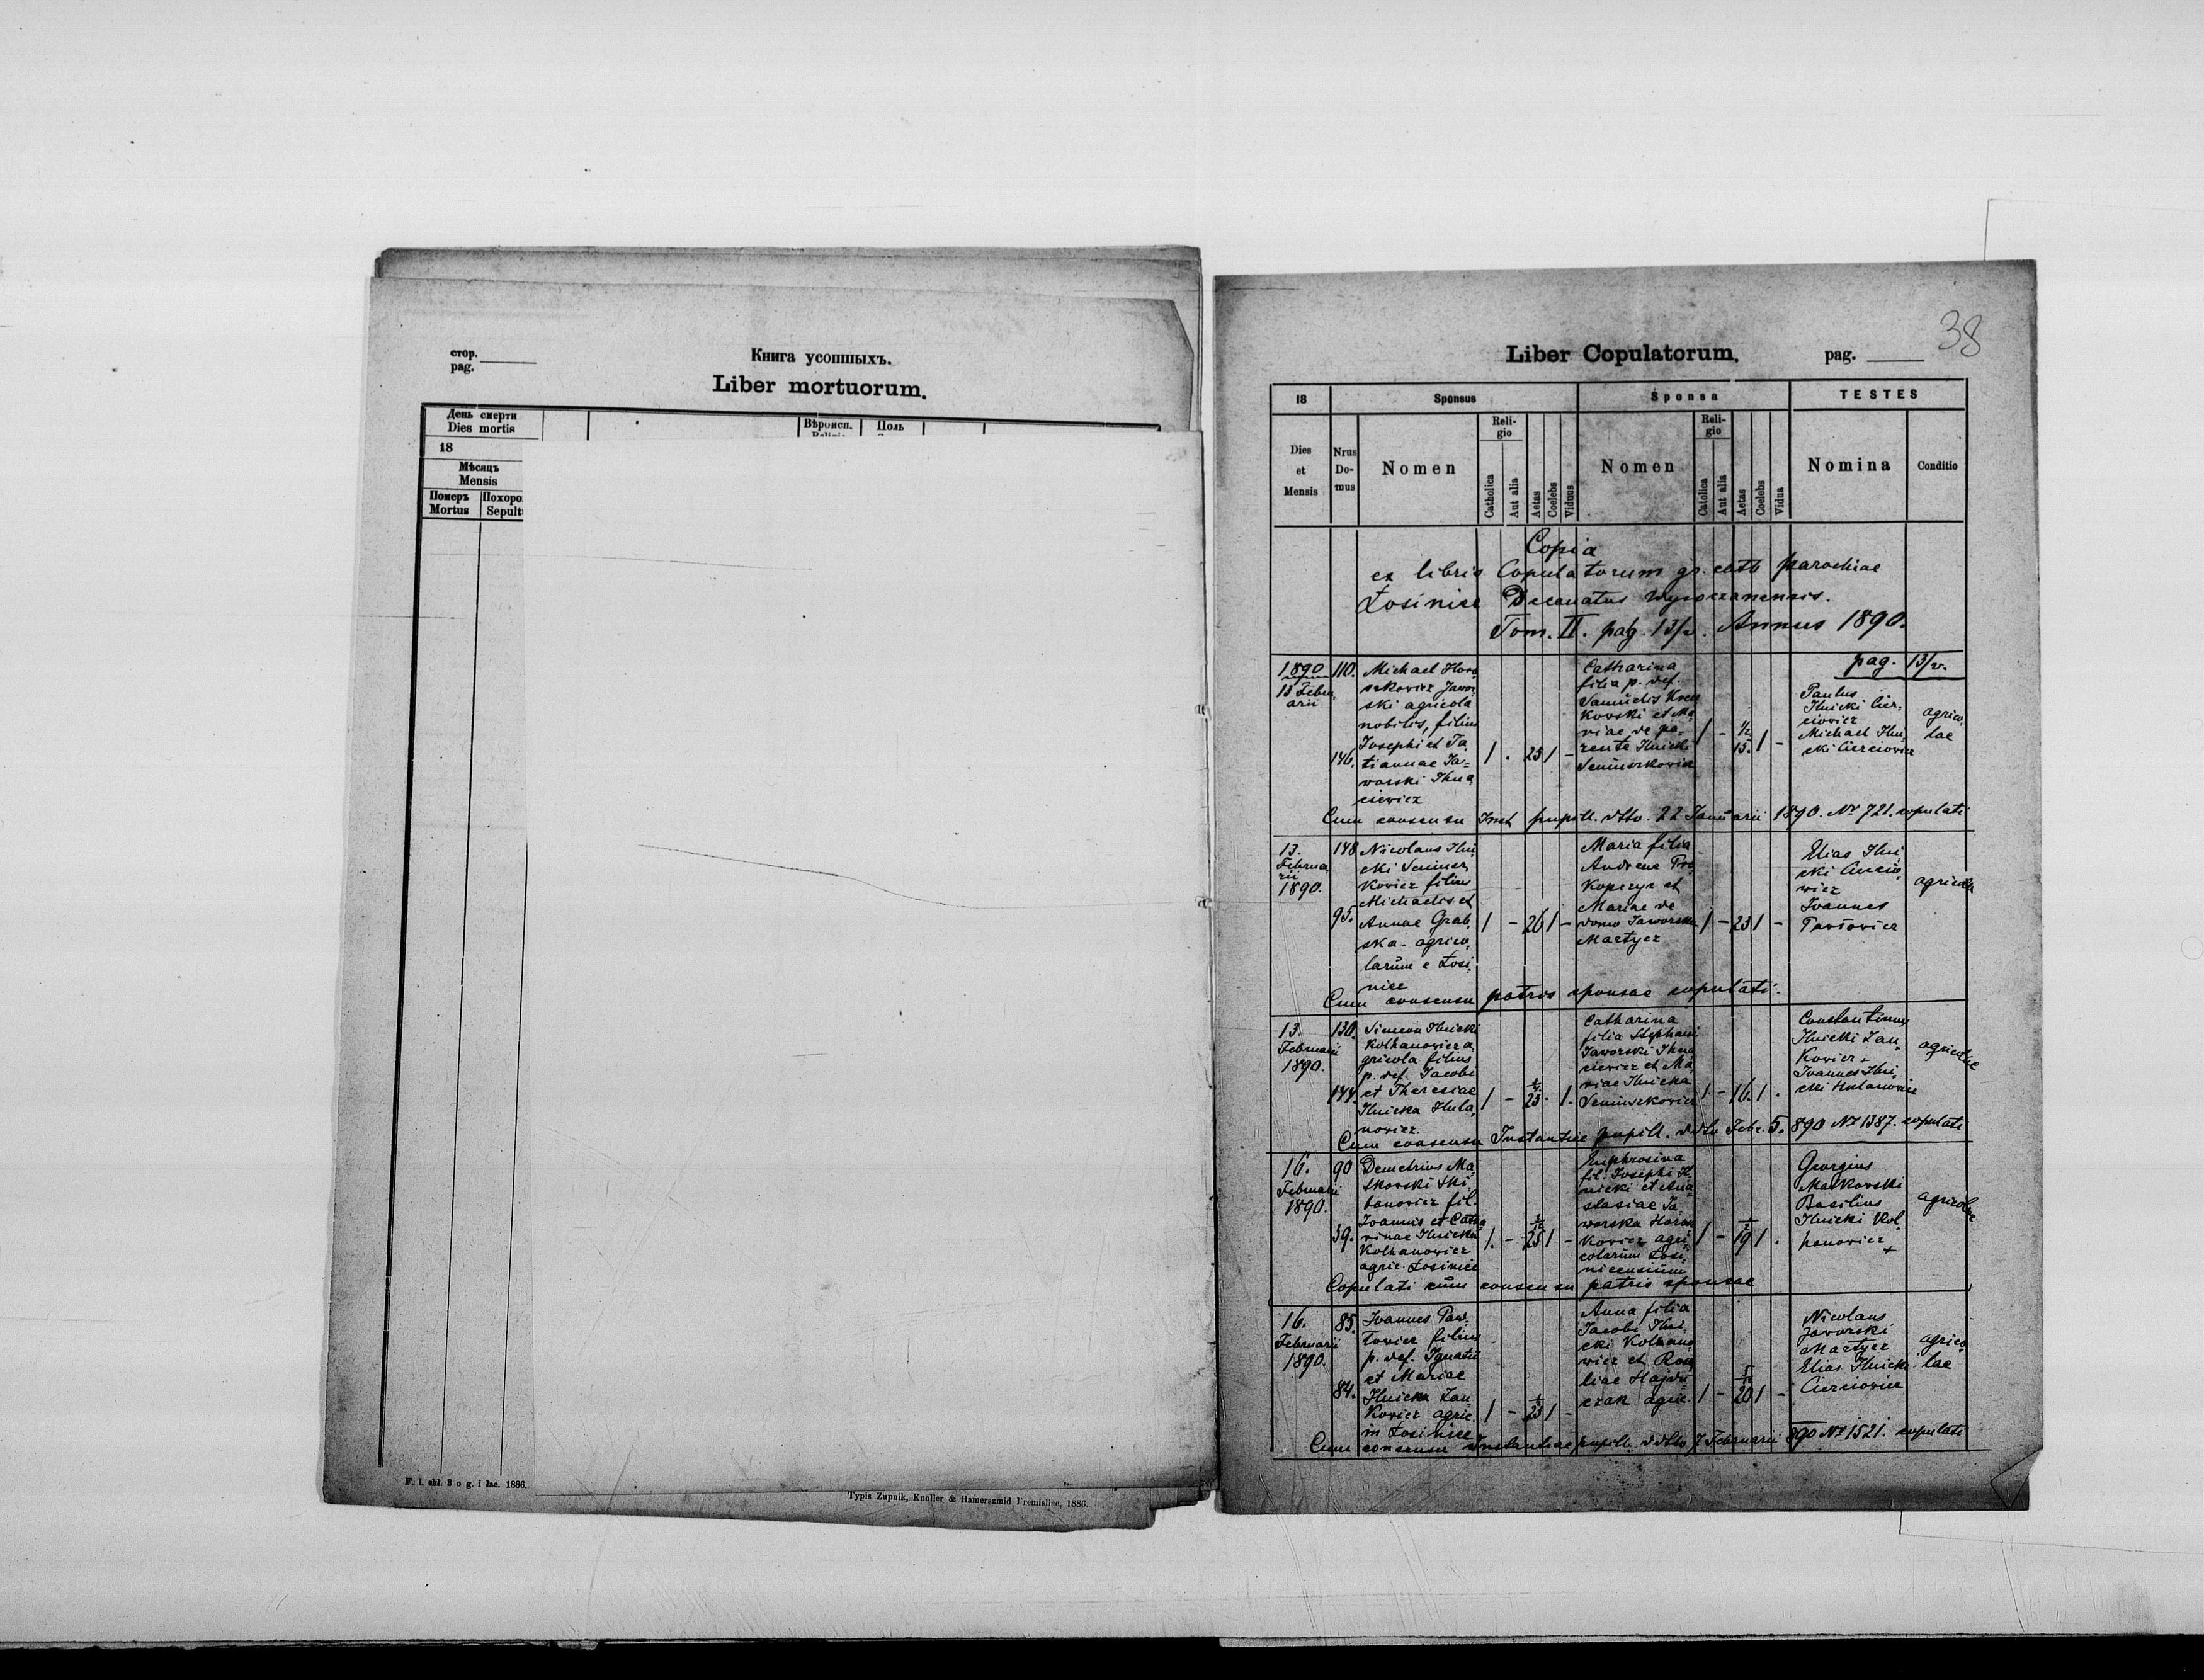 стор.
pag.
Книга усопшыхъ.
Liber mortuorum.
День смерти
Dies mortis
Вѣроисп.
Поль
18
Мѣсяцъ
Mensis
Померъ
Mortus
Похоро
Sepult
F. l. skł. 3 o g. i łac. 1886.
Typis Zupnik, Knoller & Hamerszmid Premisliae, 1886.
38
Liber Copulatorum.
pag.
18
Sponsus
Sponsa
TESTES
Dies
et
Mensis
Nrus
Do-
mus
Nomen
Reli-
gio
Catholica
Aut alia
Aetas
Coelebs
Viduus
Nomen
Reli-
gio
Catolica
Aut alia
Aetas
Coelebs
Vidua
Nomina
Conditio
Copia
ex libris Copulatorum gr. cath parochiae
Łosinice Decanatus Wysoczanensis.
Tom. II. pag. 13/v. Annus 1890.
pag. 13/v.
1890
13 Febru
arii
110.
146.
Michael Hor
Jawor
ski agricola
nobilis, filius
Josephi et Ta
tiannae Ja=
worski Ihna
ciewicz
1 . 25 1 -
Catharina
filia p. def.
Samuelis
kowski et Ma
riae de pa-
rente Ilnicki
Seniuszkowicz
1 - 15. 1 -
Paulus
Ilnicki Cier-
ciowicz
Michael Ilni
cki Cierciowicz
agrico,
lae
Cum consensu Inst pupill. ddto. 22 Januarii 1890. Nr 721. copulati
13.
Februa,
rii
1890.
148
95.
Nicolaus Ilni
cki Seniusz
kowicz filius
Michaelis et
Annae Grab
ska agrico,
larum e Łosi,
nice
1 - 26 1 -
Maria filia
Andreae Pro
kopczyc et
Mariae de
domo Jaworska
Martycz
1 - 23 1 -
Elias Ilni
cki Cierció,
wicz
Joannes
Pawłowicz
agricola
Cum consensu patris sponsae copulati.
13.
Februarii
1890.
130.
144.
Simeon Ilnicki
Kolhanowicz a,
gricola filius
p. def. Jacobi
et Theresiae
Ilnicka Hula
nowicz.
1 - 23. 1.
Catharina
filia Stephani
Jaworski Ihna
ciewicz et Ma
riae Ilnicka
Seniuszkowicz
1 - 16. 1 .
Constantinus
Ilnicki Zan
kowicz +
Joannes Ilni
cki Hulanowicz
agricolae
Cum consensu Instantiae pupill. ddto Febr. 5. 890 Nr 1387. copulati
16.
Februarii
1890.
90
39.
Demetrius Ma
skowski Ski
banowicz fil.
Joannis et Catha
rinae Ilnicka
Kolhanowicz
agric. Łosinice
1. - 25 1 -
Euphrosina
fil. Josephi Il
nicki et Ana
stasiae Ja
worska Horosz
kowicz agri,
colarum Łosi,
nicensium
1 - 19 1 .
Georgius
Maskowski
Basilius
Ilnicki Kol
hanowicz
+
agricolae
Copulati cum consensu patris sponsae
16.
Februarii
1890.
85.
84.
Joannes Paw
łowicz filius
p. def. Ignatii
et Mariae
Ilnicka Zan
kowicz agric.
in Łosinice
1 - 23 1 -
Anna filia
Jacobi Ilni
cki Kolhano
wicz et Rosa
liae Hajdu
czak agric.
1 - 20 1 -
Nicolaus
Jaworski
Martycz
Elias Ilnicki
Cierciowicz
agrico,
lae
Cum consensu Instantiae pupill. ddto 7 Februarii 890 Nr 1521. copulati